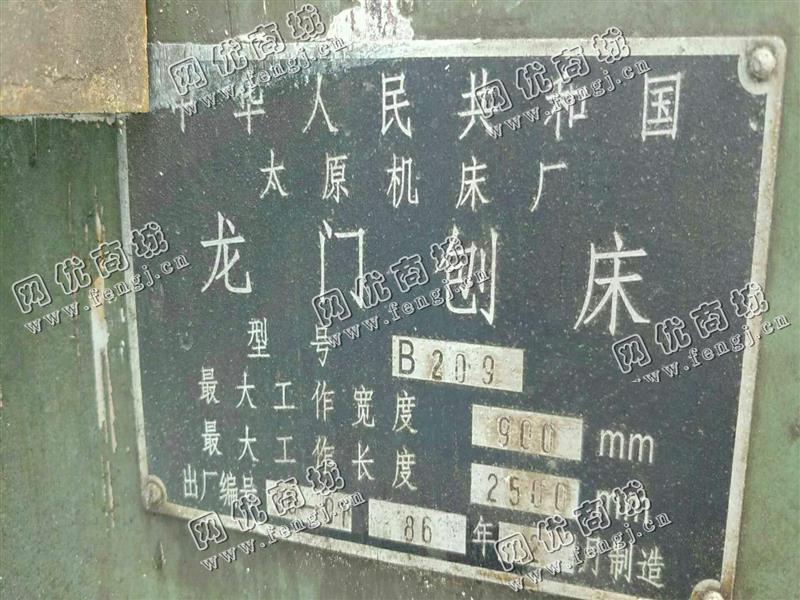 中华人民共和国
太原机床厂
龙门刨床
型号 B209
最大工作宽度 900 mm
最大工作长度 2500 mm
出厂编号 86年 月制造
网优商城
www.fengj.cn
网优商城
www.fengj.cn
网优商城
www.fengj.cn
网优商城
www.fengj.cn
网优商城
www.fengj.cn
网优商城
www.fengj.cn
网优商城
www.fengj.cn